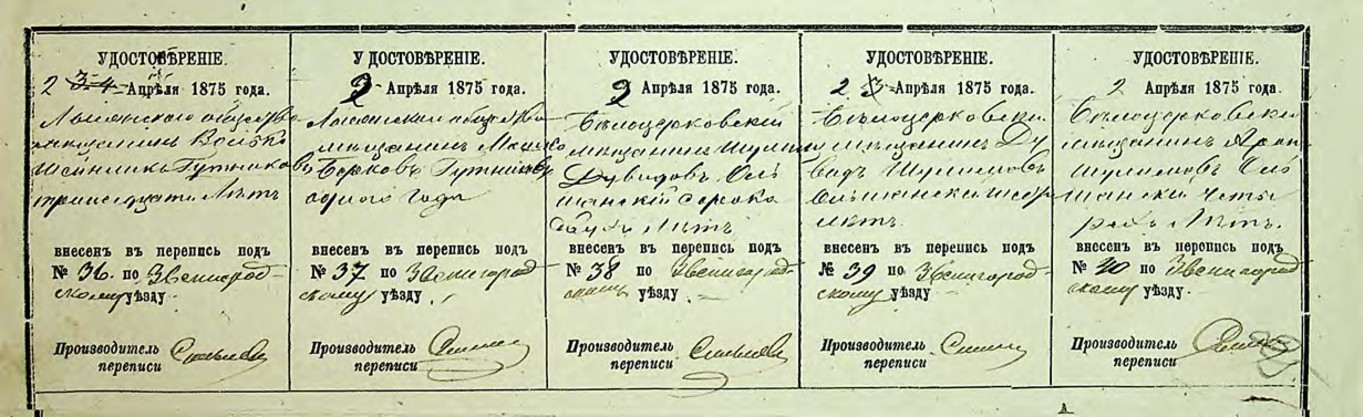 УДОСТОВѢРЕНІЕ.
2 Апрѣля 1875 года.
Лысянскаго общества
мѣщанинъ
лѣтъ
внесенъ въ перепись подъ
№ 36. по Звенигород-
скому уѣзду.
Производитель
переписи
УДОСТОВѢРЕНІЕ.
2 Апрѣля 1875 года.
мѣщанинъ
Берковъ Гутниковъ
одного года
внесенъ въ перепись подъ
№ 37 по Звенигород-
скому уѣзду.
Производитель
переписи
УДОСТОВѢРЕНІЕ.
2 Апрѣля 1875 года.
Бѣлоцерковскій
мѣщанинъ
Дувидовъ Оль
шанскій сорока
лѣтъ
внесенъ въ перепись подъ
№ 38 по Звенигород
скому уѣзду
Производитель
переписи
УДОСТОВѢРЕНІЕ.
2 Апрѣля 1875 года.
Бѣлоцерковскій
мѣщанинъ Ду
видъ Шулимовъ
Ольшанскій
лѣтъ.
внесенъ въ перепись подъ
№ 39 по Звенигород-
скому уѣзду
Производитель
переписи
УДОСТОВѢРЕНІЕ.
2 Апрѣля 1875 года.
Бѣлоцерковскій
мѣщанинъ Аронъ
Шулимовъ Оль
шанскій четы
рехъ лѣтъ.
внесенъ въ перепись подъ
№ 40 по Звенигород
скому уѣзду.
Производитель
переписи